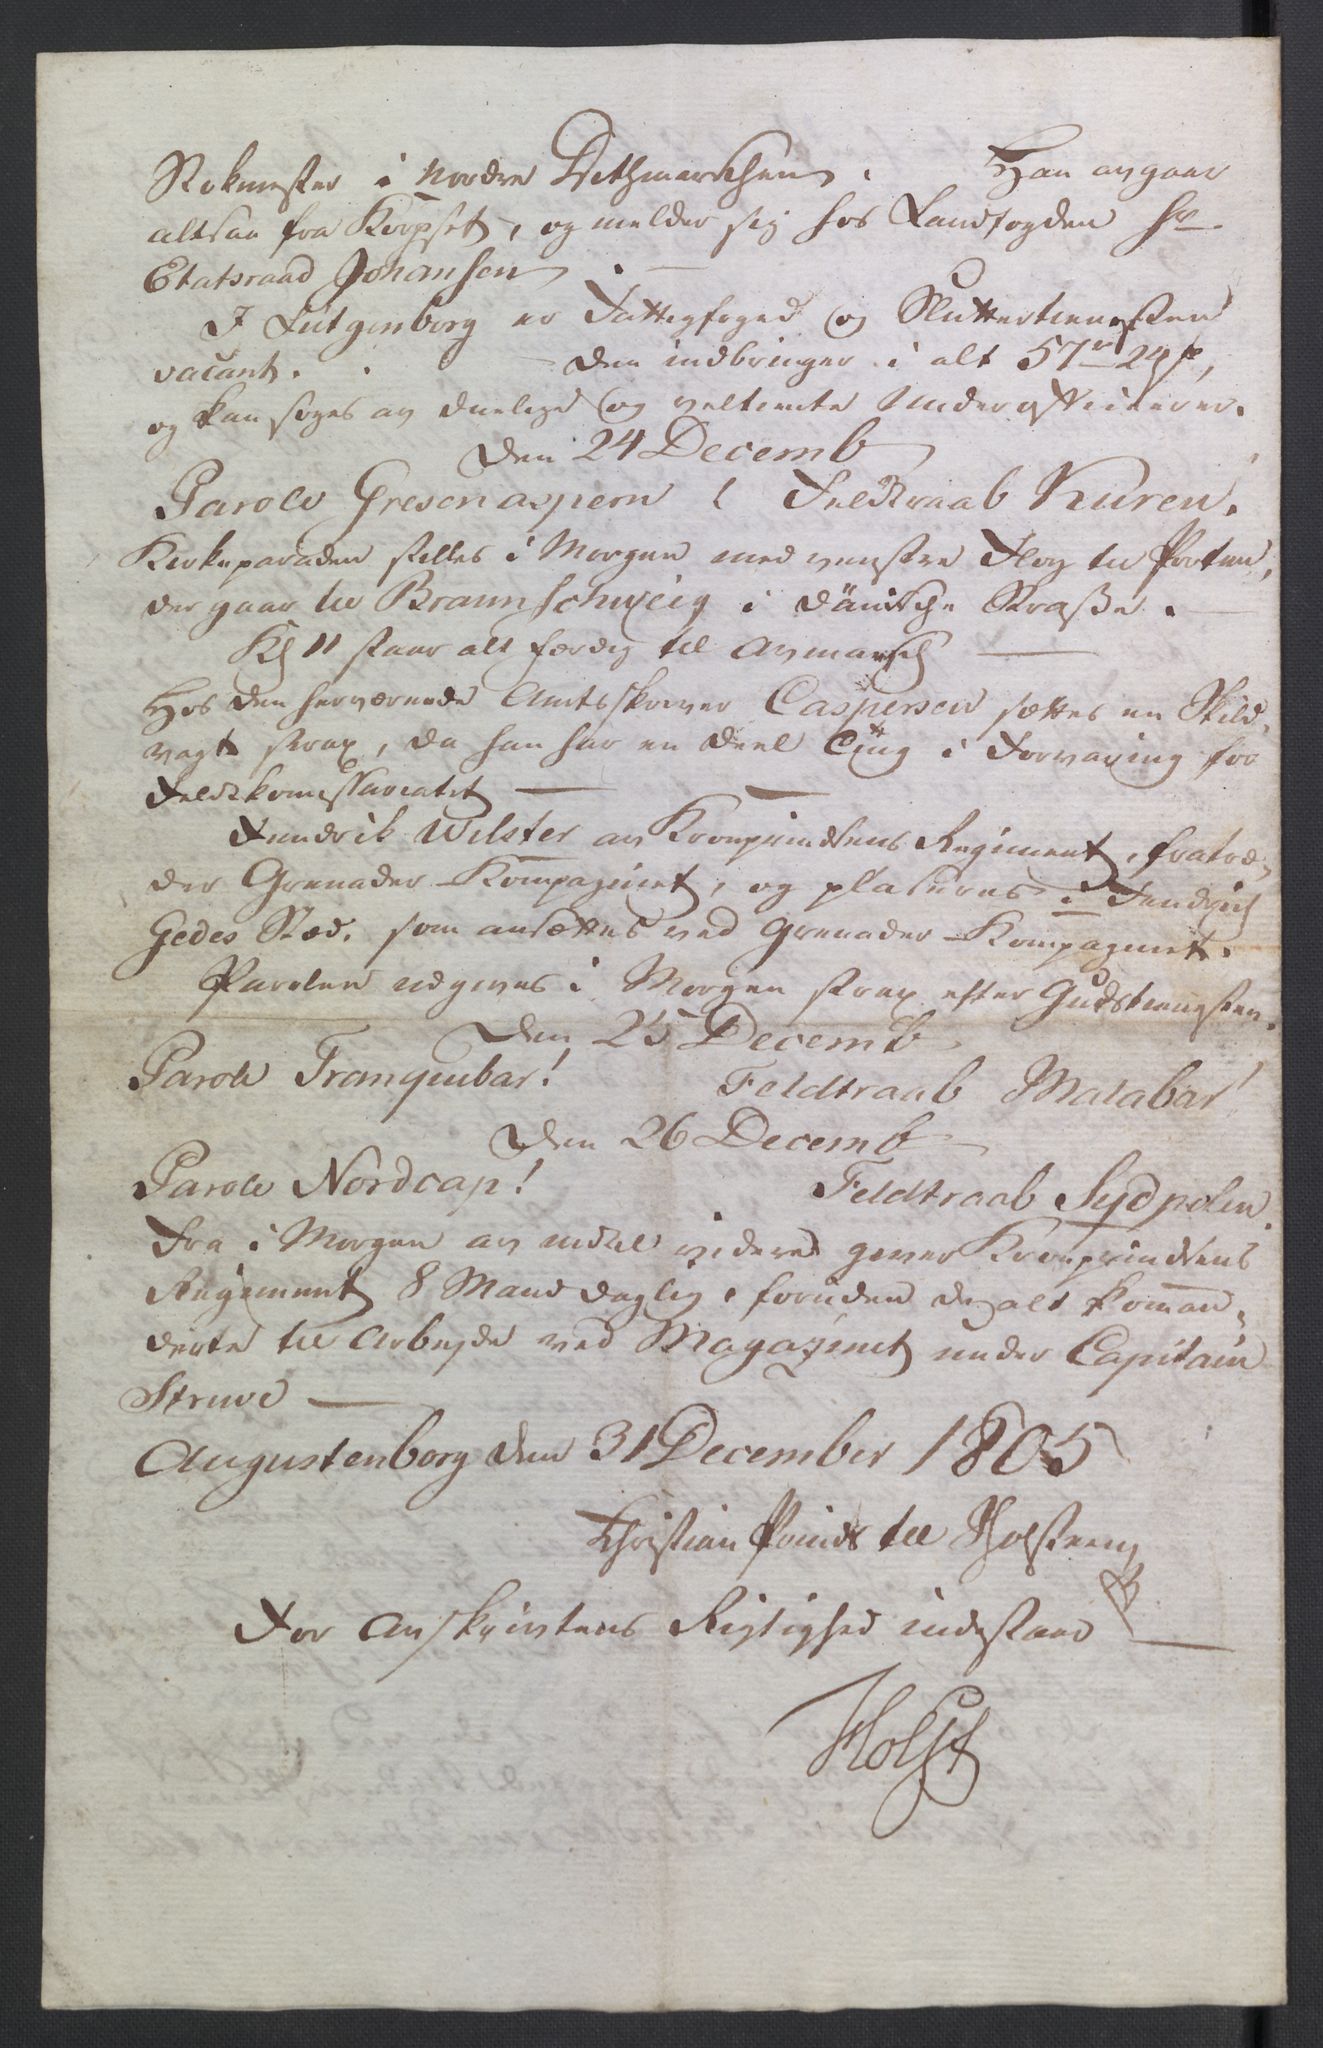 Stokmester i Nordre Dithmarschen. Han avgaar
altsaa fra Korpset, og melder sig hos Landfogden Hr.
Etatsraad Johansen.
I Lütgenborg er Fattigfoged og Sluttertienesten
vacant. Den indbringer i alt 57 r 24 s,
og kan søges av duelige og veltiente Underofficerer.
Den 24 Decemb
Parole Gresenaspern! Feldtraab Kuren.
Kirkeparaden stilles i Morgen med venstre Fløy til Porten,
der gaar til Braunschweig i Dänische Straße.
Kl 11 staar alt færdig til Avmarsch
Hos den herværende Amtsskriver Caspersen sættes en Skild-
vagt strax, da han har en Deel Tüig i Forvaring for
Feldtkomissariatet
Fændrik Wilster av Kronprindsens Regiment, fratræ-
der Grenader-Kompagniet, og plaseres i Fendrich
Gedes Stæd, som ansættes ved Grenader-Kompagniet.
Parolen udgives i Morgen strax efter Gudstienesten.
Den 25 Decemb
Parole Tranquebar! Feldtraab Malabar!
Den 26 Decemb
Parole Nordcap! Feldtraab Sydpolen.
Fra i Morgen av indtil videre giver Kronprindsens
Regiment 8 Mand daglig, foruden de alt koman-
derte til Arbejde ved Magazinet under Capitain
Struve
Augustenborg den 31 December 1805
Christian Prinds til Holsteen
For Avskrivtens Rigtighed indestaar
Holst